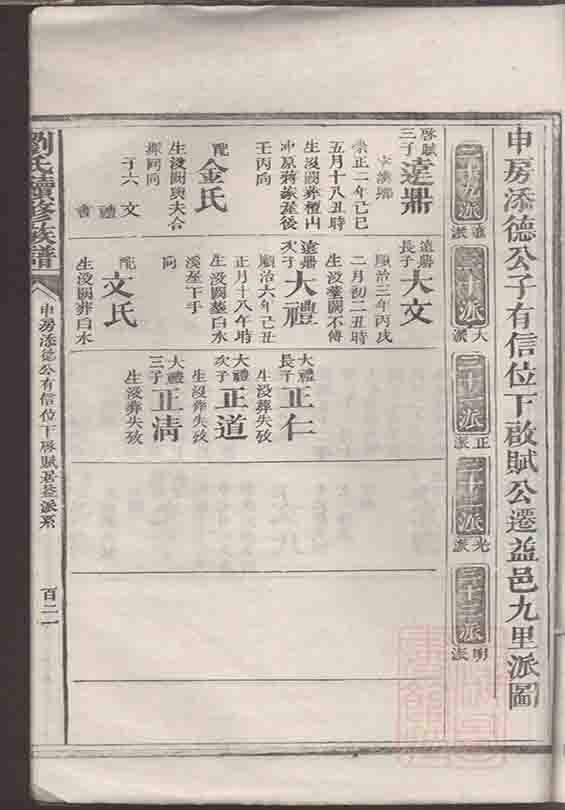 申房添德公子有信位下啟賦公遷益邑九里派圖
二十九派
遠派
三十派
大派
三十一派
正派
三十二派
光派
三十三派
明派
啓賦
三子
遠鼎
崇正二年己巳
五月十八丑時
生沒闕葬檀山
冲原蔣家屋後
壬丙向
配
金氏
生沒闕與夫合
塚同向
子六
文
禮
遠鼎
長子
大文
順治三年丙戌
二月初二丑時
生沒葬闕不傳
遠鼎
次子
大禮
順治六年己丑
正月十八午時
生沒闕葬白水
溪笙下手
向
配
文氏
生沒闕葬白水
大禮
長子
正仁
生沒葬失攷
大禮
次子
正道
生沒葬失攷
大禮
三子
正清
生沒葬失攷
劉氏續修族譜
申房添德公有信位下啓賦居益派系
百二一